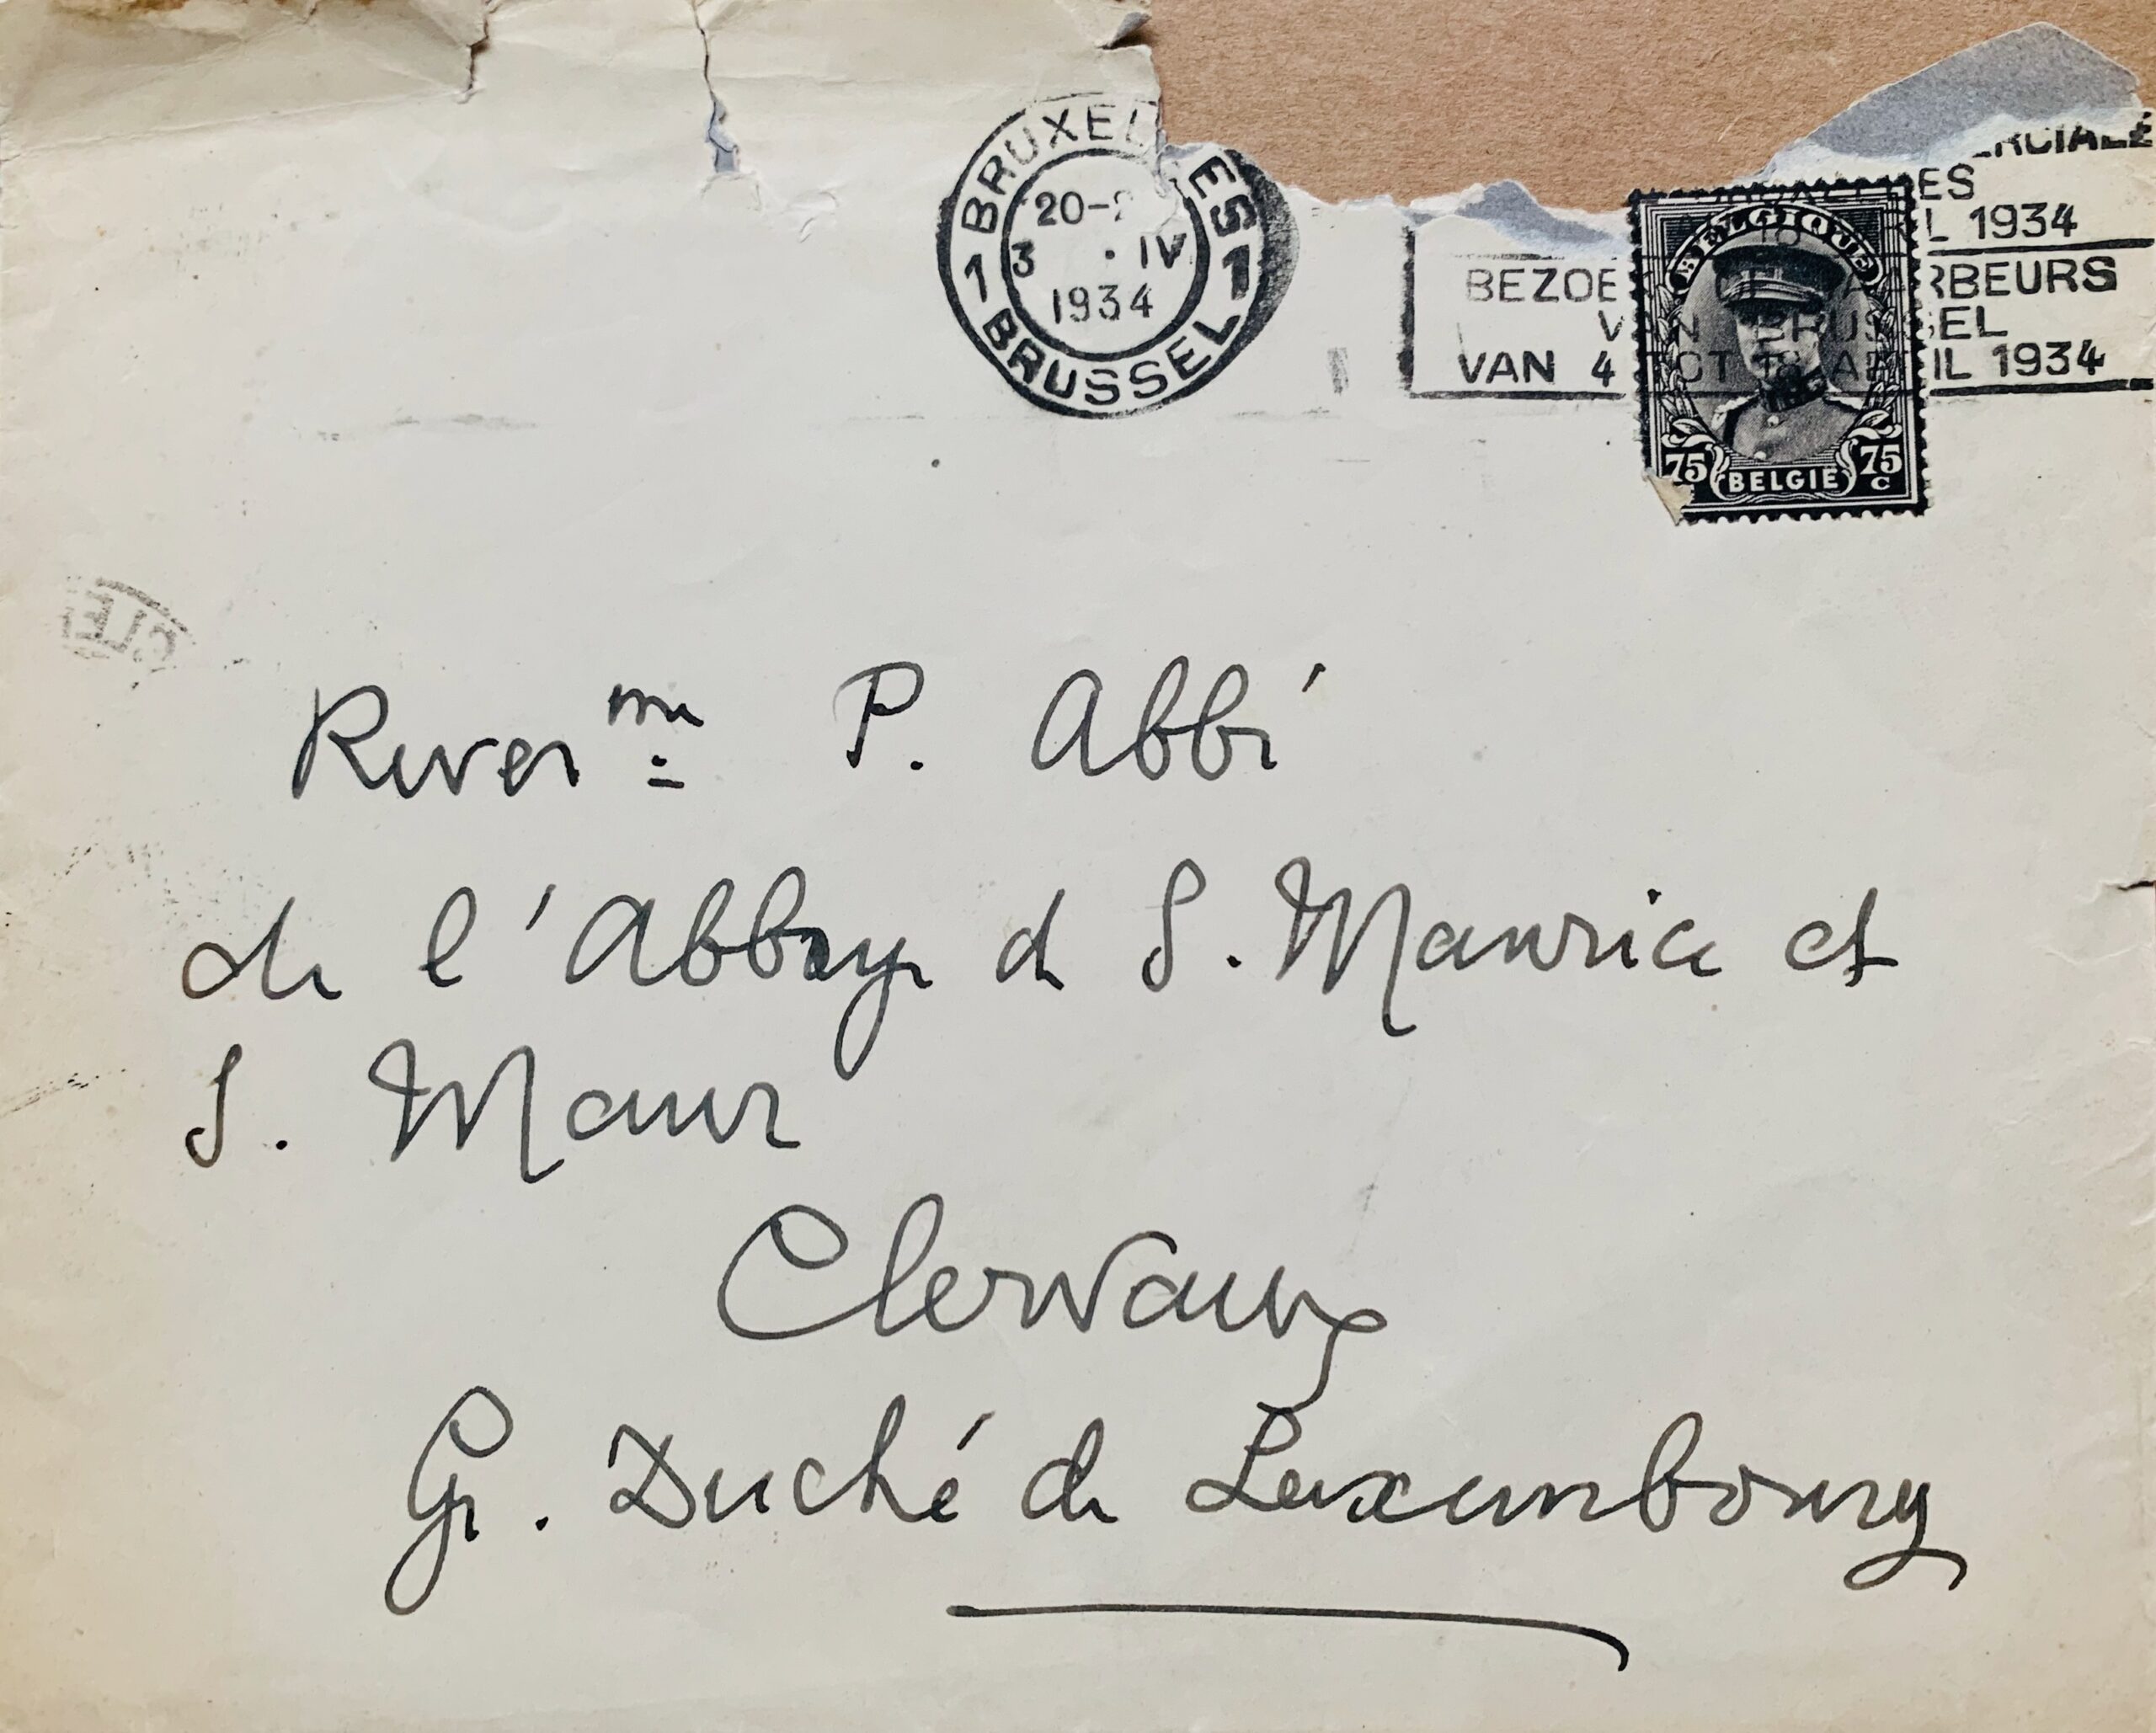 BRUXEL ES
20-
3 . IV
1934
1 1
BRUSSEL
RCIALE
ES
L 1934
BEZOE RBEURS
VAN BRUSSEL
VAN 4 TOT 18 APRIL 1934
BELGIQUE
75 75
BELGIE c
CLE
Rever me P. Abbé
de l'Abbaye de S. Maurice et
S. Maur
Clervaux
Gr. Duché de Luxembourg